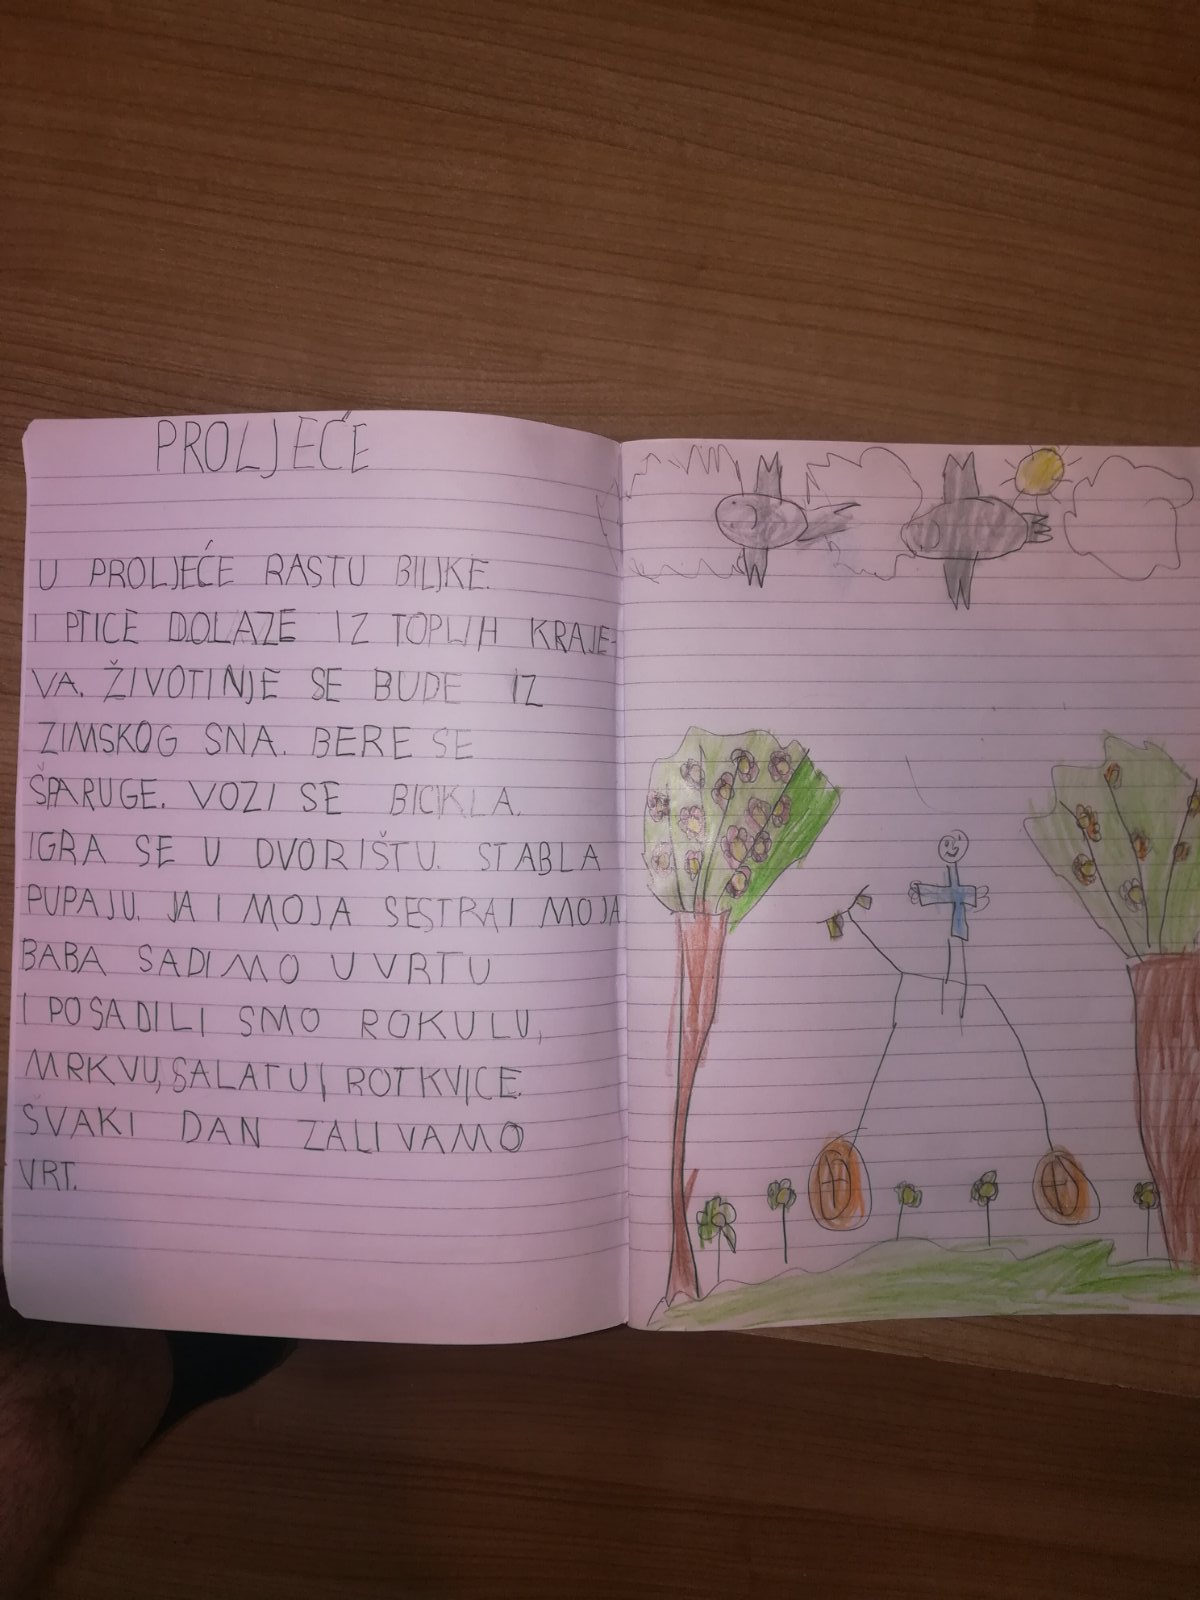 PROLJEĆE
U PROLJEĆE RASTU BILJKE.
I PTICE DOLAZE IZ TOPLIH KRAJE-
VA. ŽIVOTINJE SE BUDE IZ
ZIMSKOG SNA. BERE SE
ŠPARUGE. VOZI SE BICIKLA.
IGRA SE U DVORIŠTU. STABLA
PUPAJU. JA I MOJA SESTRA I MOJA
BABA SADIMO U VRTU
I POSADILI SMO ROKULU,
MRKVU, SALATU I ROTKVICE.
SVAKI DAN ZALIVAMO
VRT.